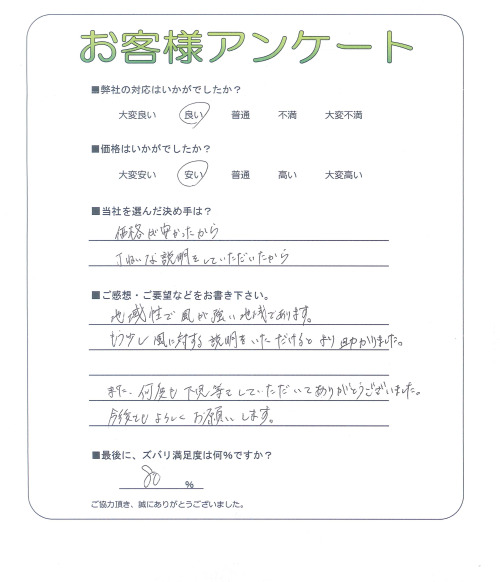 お客様アンケート
■弊社の対応はいかがでしたか？
大変良い 良い 普通 不満 大変不満
■価格はいかがでしたか？
大変安い 安い 普通 高い 大変高い
■当社を選んだ決め手は？
価格が安かったから
ていねいな説明をしていただいたから
■ご感想・ご要望などをお書き下さい。
地域性で風が強い地域であります。
もう少し風に対する説明をいただけるとより助かりました。
また、何度も下見等をしていただいてありがとうございました。
今後ともよろしくお願いします。
■最後に、ズバリ満足度は何％ですか？
80 ％
ご協力頂き、誠にありがとうございました。